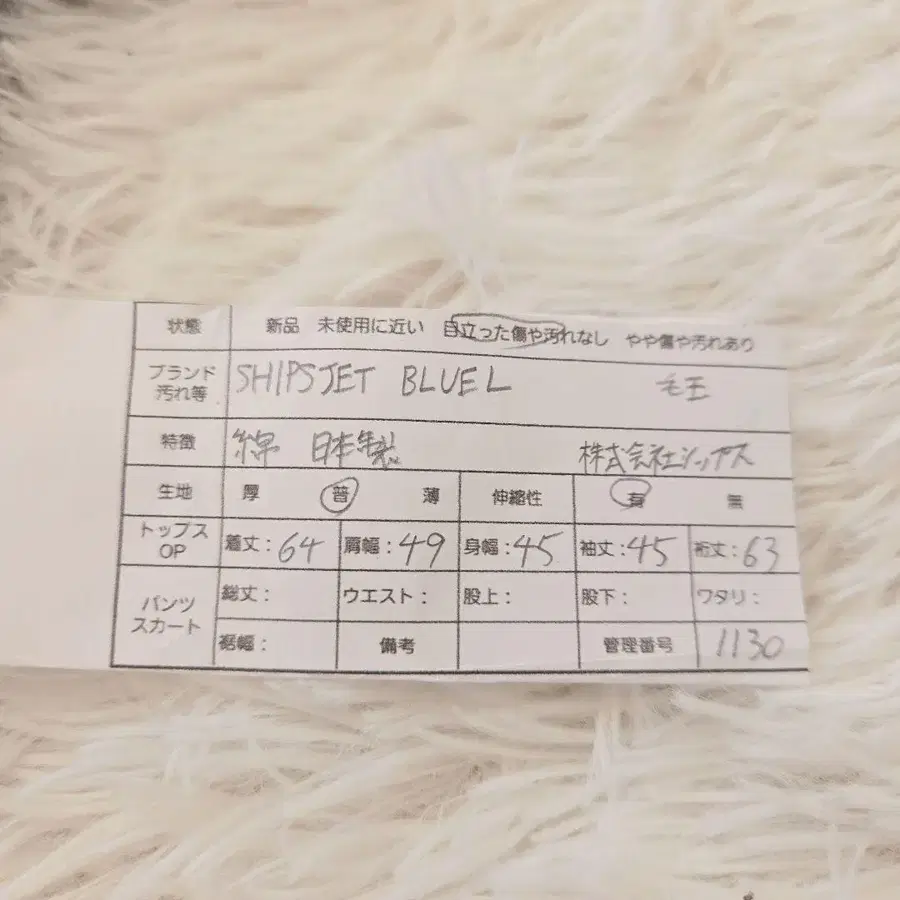 状態 新品 未使用に近い 目立った傷や汚れなし やや傷や汚れあり
ブランド 汚れ等 SHIPS JET BLUE L 毛玉
特徴 綿 日本製 株式会社シップス
生地 厚 普 薄 伸縮性 有 無
トップス OP 着丈：64 肩幅：49 身幅：45 袖丈：45 裄丈：63
パンツ スカート 総丈： ウエスト： 股上： 股下： ワタリ：
裾幅： 備考 管理番号 1130